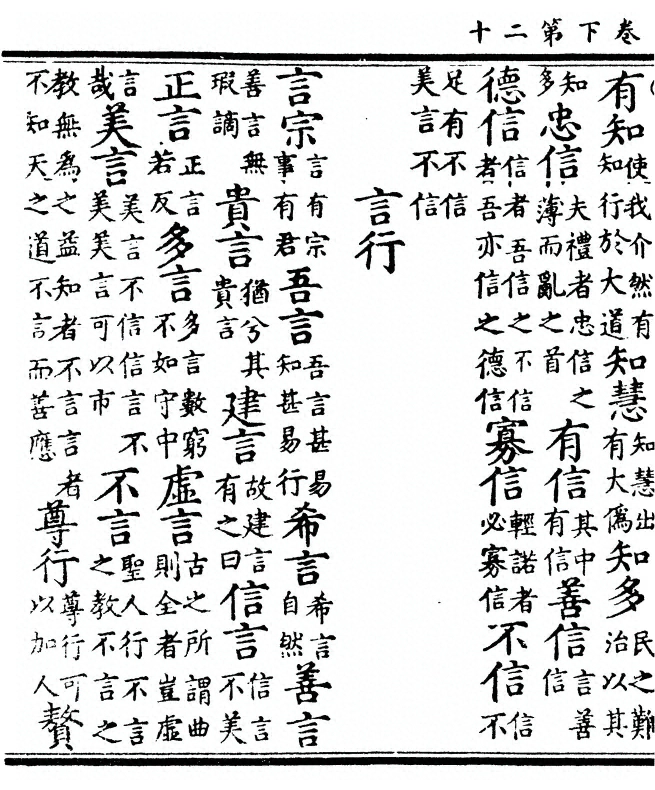 卷下第二十
有知使我介然有知行於大道知慧知慧出有大偽知多民之難治以其
知多忠信夫禮者忠信之薄而亂之首有信其中有信善信言善信
德信信者吾信之不信者吾亦信之德信寡信輕諾者必寡信不信信不
足有不信美言不信
言行
言宗言有宗事有君吾言吾言甚易知甚易行希言希言自然善言
善言無瑕謫貴言猶兮其貴言建言故建言有之曰信言信言不美
正言正言若反多言多言數窮不如守中虛言古之所謂曲則全者豈虛
言哉美言美言不信信言不美美言可以市不言聖人行不言之教不言之
教無為之益知者不言言者不知天之道不言而善應尊行尊行可以加人贅